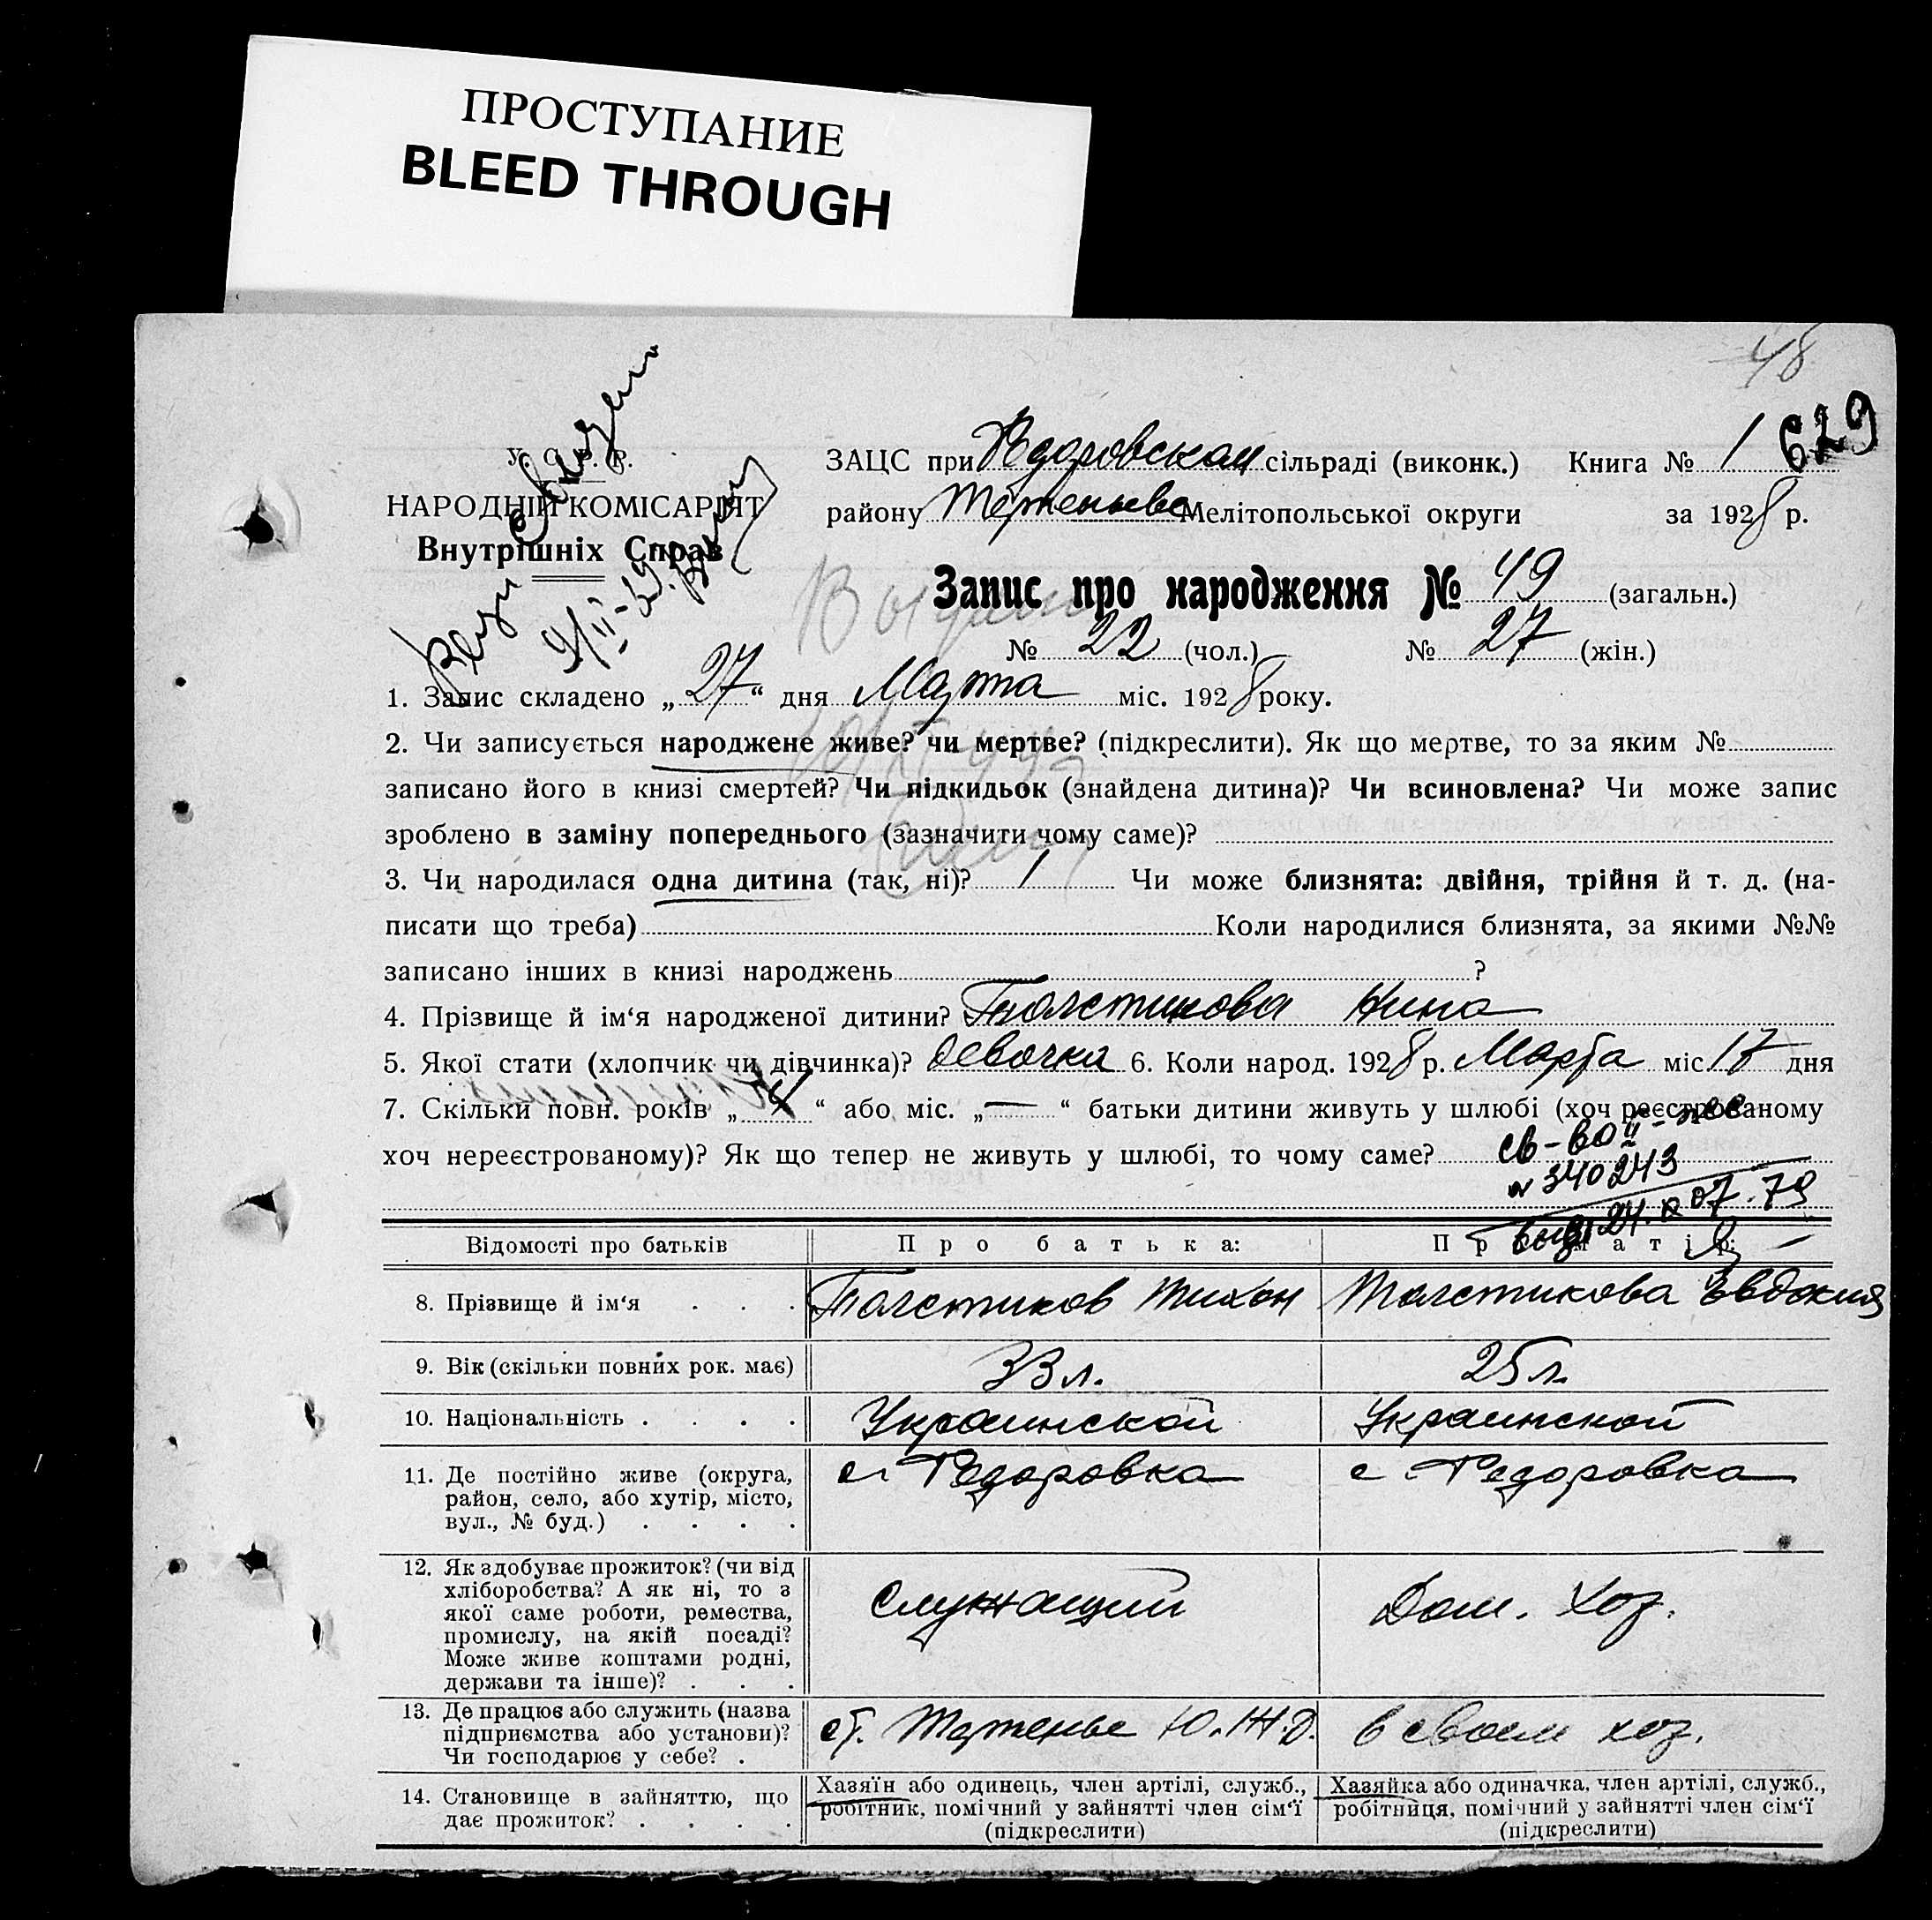 ПРОСТУПАНИЕ
BLEED THROUGH
48
629
У. С. Р. Р.
НАРОДНІЙ КОМІСАРІЯТ
Внутрішніх Справ
ЗАЦС при Федоровской сільраді (виконк.) Книга № 1
району Терпенье Мелітопольської округи за 1928 р.
Запис про народження № 49 (загальн.)
№ 22 (чол.) № 27 (жін.)
1. Запис складено „27“ дня Марта міс. 1928 року.
2. Чи записується народжене живе? чи мертве? (підкреслити). Як що мертве, то за яким №
записано його в книзі смертей? Чи підкидьок (знайдена дитина)? Чи всиновлена? Чи може запис
зроблено в заміну попереднього (зазначити чому саме)?
3. Чи народилася одна дитина (так, ні)? 1 Чи може близнята: двійня, трійня й т. д. (на-
писати що треба) Коли народилися близнята, за якими №№
записано інших в книзі народжень ?
4. Прізвище й ім‘я народженої дитини? Толстикова Нина
5. Якої стати (хлопчик чи дівчинка)? девочка 6. Коли народ. 1928 р. Марта міс 17 дня
7. Скільки повн. років „4“ або міс. „—“ батьки дитини живуть у шлюбі (хоч реєстрованому
хоч нереєстрованому)? Як що тепер не живуть у шлюбі, то чому саме?
св-во II-
№ 340243
24.07.79
Відомості про батьків Про батька: Про матір:
8. Прізвище й ім‘я . . . Толстиков Тихон Толстикова Евдокия
9. Вік (скільки повних рок. має) 33 л. 25 л.
10. Національність . . . . Украинской Украинской
11. Де постійно живе (округа,
район, село, або хутір, місто,
вул., № буд.) . . . .
с. Федоровка с. Федоровка
12. Як здобуває прожиток? (чи від
хліборобства? А як ні, то з
якої саме роботи, ремества,
промислу, на якій посаді?
Може живе коштами родні,
держави та інше)? . . .
Служащий Дом. Хоз.
13. Де працює або служить (назва
підприємства або установи)?
Чи господарює у себе? .
ст. Терпенье Ю.Ж.Д. в своем хоз.
14. Становище в зайняттю, що
дає прожиток? . . . .
Хазяїн або одинець, член артілі, служб.,
робітник, помічний у зайнятті член сім‘ї
(підкреслити)
Хазяйка або одиначка, член артілі, служб.,
робітниця, помічний у зайнятті член сім‘ї
(підкреслити)